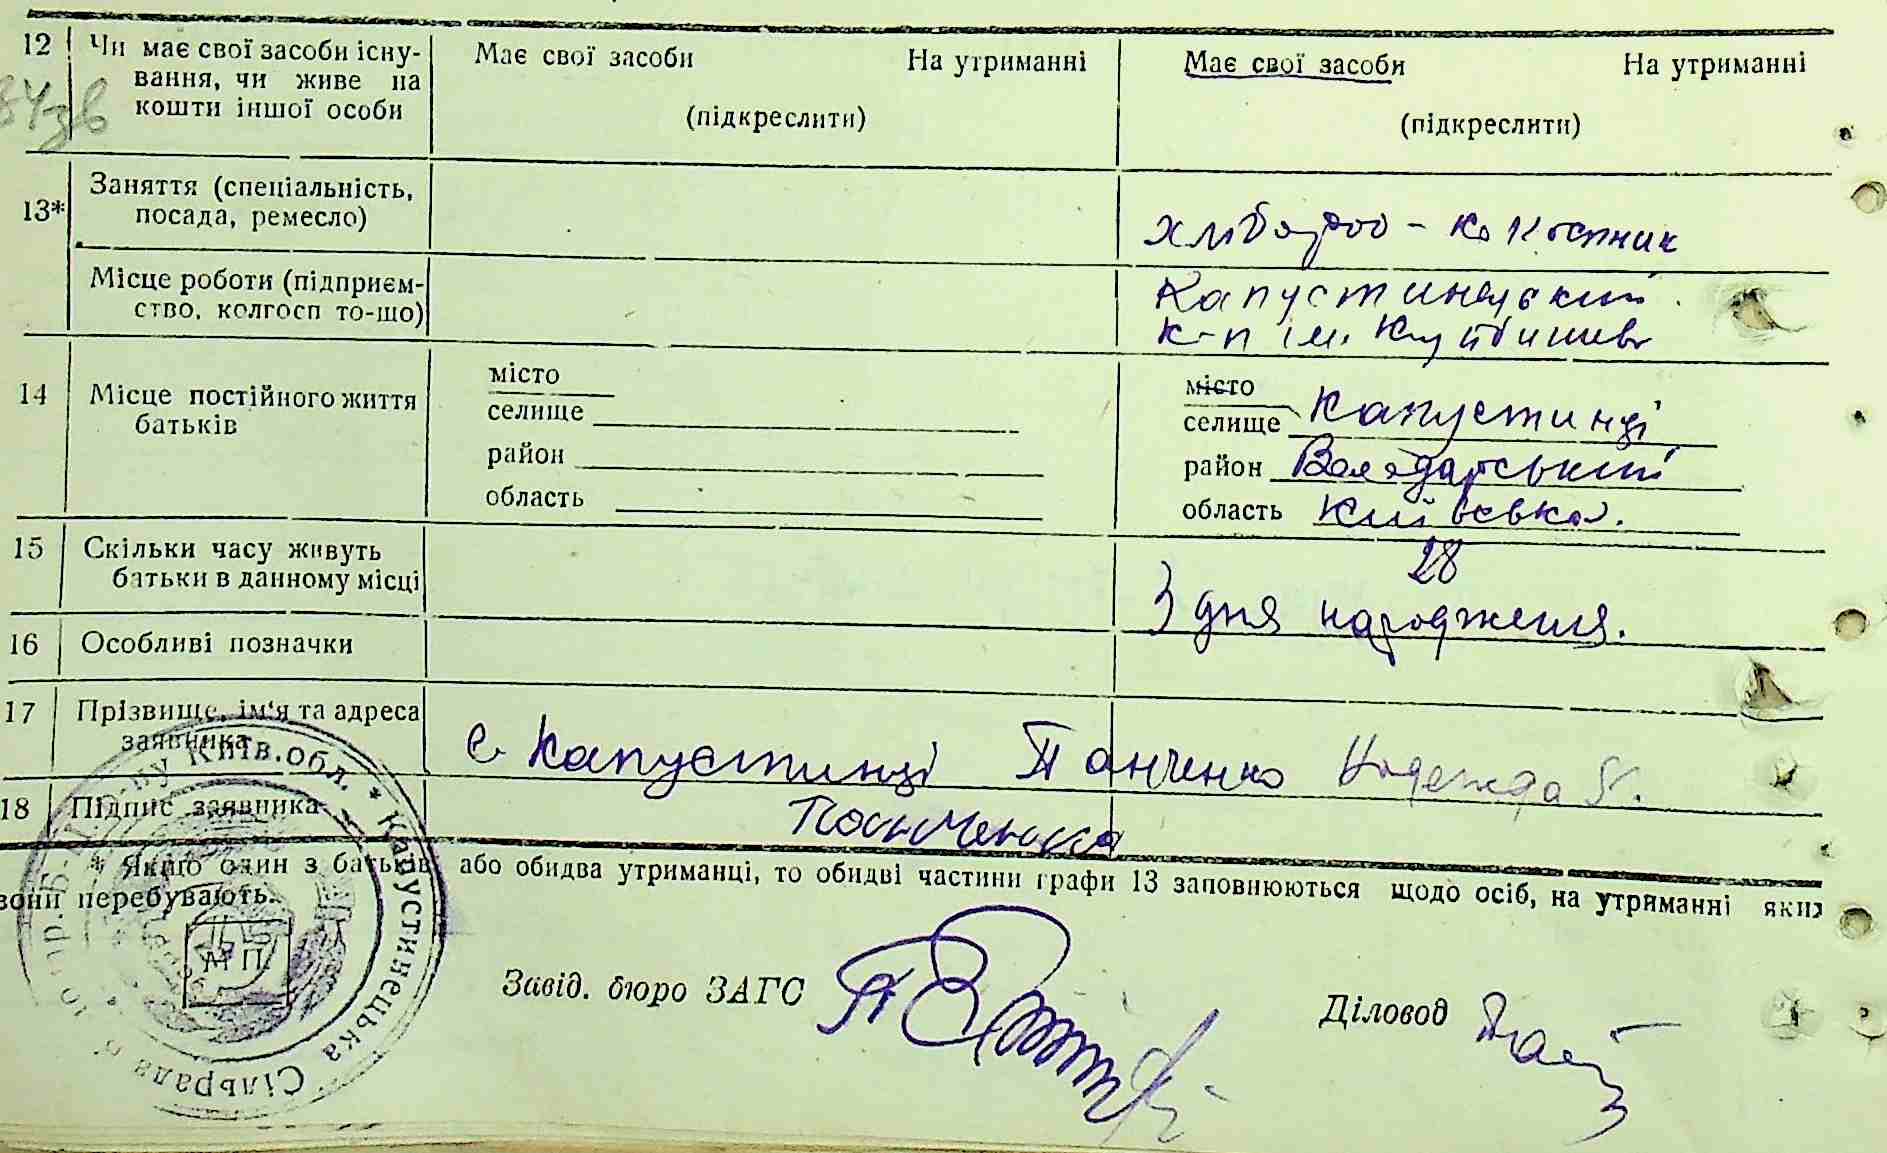 12 Чи має свої засоби існу-
вання, чи живе на
кошти іншої особи
Має свої засоби На утриманні
(підкреслити)
Має свої засоби На утриманні
(підкреслити)
13* Заняття (спеціальність,
посада, ремесло)
хлібороб - колгоспник
Місце роботи (підприєм-
ство, колгосп то-що)
Капустинський
к-п ім. Куйбишева
14 Місце постійного життя
батьків
місто
селище
район
область
місто
селище Капустинці
район Володарський
область Київська.
15 Скільки часу живуть
батьки в данному місці
28
З дня народження.
16 Особливі позначки
17 Прізвище, ім'я та адреса
заявника
с. Капустинці Панченко Надежда
18 Підпис заявника
Панченко
* Якщо один з батьків або обидва утриманці, то обидві частини графи 13 заповнюються щодо осіб, на утриманні яких
вони перебувають.
М П.
Київ.обл. * Капустинецька Сільрада
Завід. бюро ЗАГС
Діловод